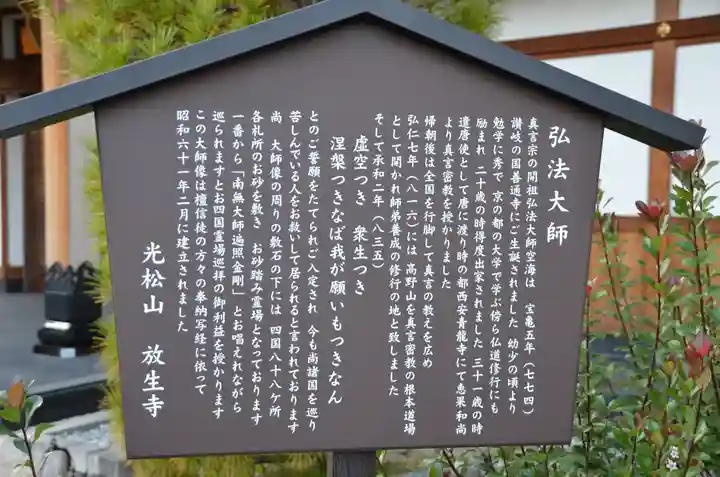 弘法大師
真言宗の開祖弘法大師空海は　宝亀五年（七七四）
讃岐の国善通寺にご生誕されました　幼少の頃より
勉学に秀で　京の都の大学で学ぶ傍ら仏道修行にも
励まれ　二十歳の時得度出家されました　三十一歳の時
遣唐使として唐に渡り時の都西安青龍寺にて恵果和尚
より真言密教を授かりました
帰朝後は全国を行脚して真言の教えを広め
弘仁七年（八一六）には　高野山を真言密教の根本道場
として開かれ師弟養成の修行の地と致しました
そして承和二年（八三五）
虚空つき　衆生つき
涅槃つきなば我が願いもつきなん
とのご誓願をたてられご入定され　今も尚諸国を巡り
苦しんでいる人をお救いして居られると言われております
尚　大師像の周りの敷石の下には　四国八十八ケ所
各札所のお砂を敷き　お砂踏み霊場となっております
一番から「南無大師遍照金剛」とお唱えれながら
巡られますとお四国霊場巡拝の御利益を授かります
この大師像は檀信徒の方々の奉納写経に依って
昭和六十一年二月に建立されました
光松山　放生寺